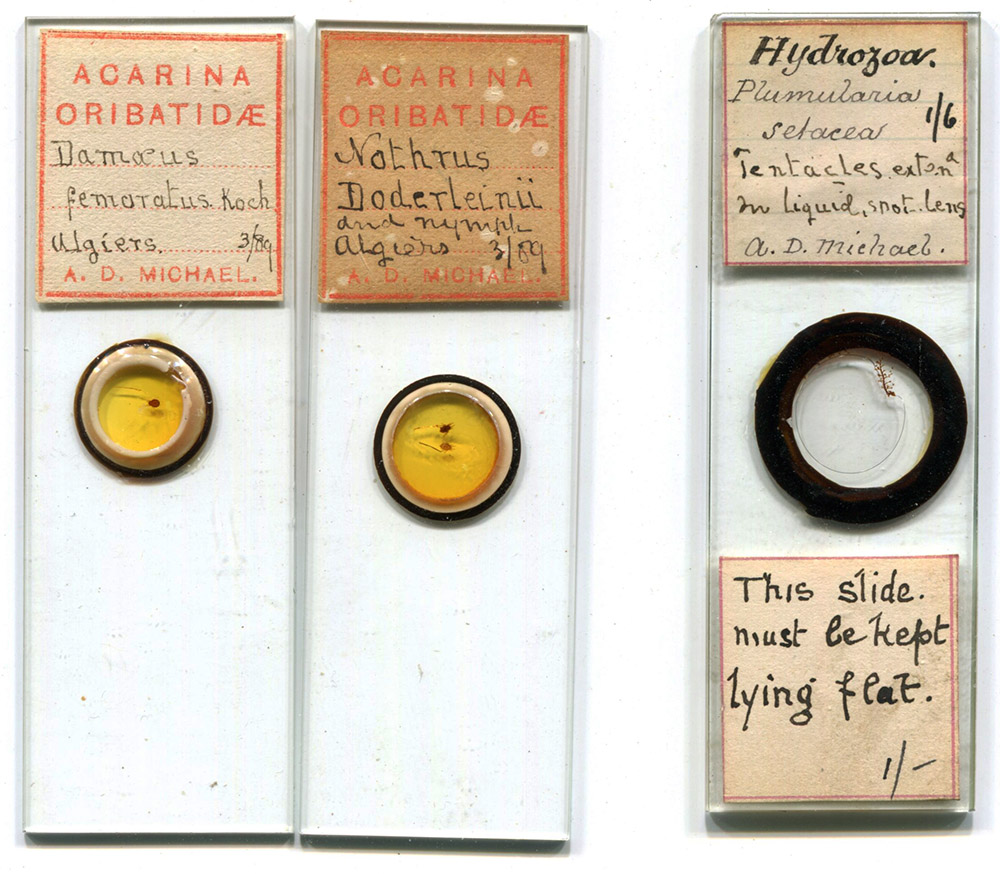 ACARINA
ORIBATIDÆ
Damæus
femoratus. Koch
Algiers. 3/89
A. D. MICHAEL.
ACARINA
ORIBATIDÆ
Nothrus
Doderleinii
and nymph
Algiers 3/89
A. D. MICHAEL.
Hydrozoa.
Plumularia
setacea 1/6
Tentacles extend
in liquid, spot. lens
A. D. Michael.
This slide.
must be kept
lying flat.
1/-